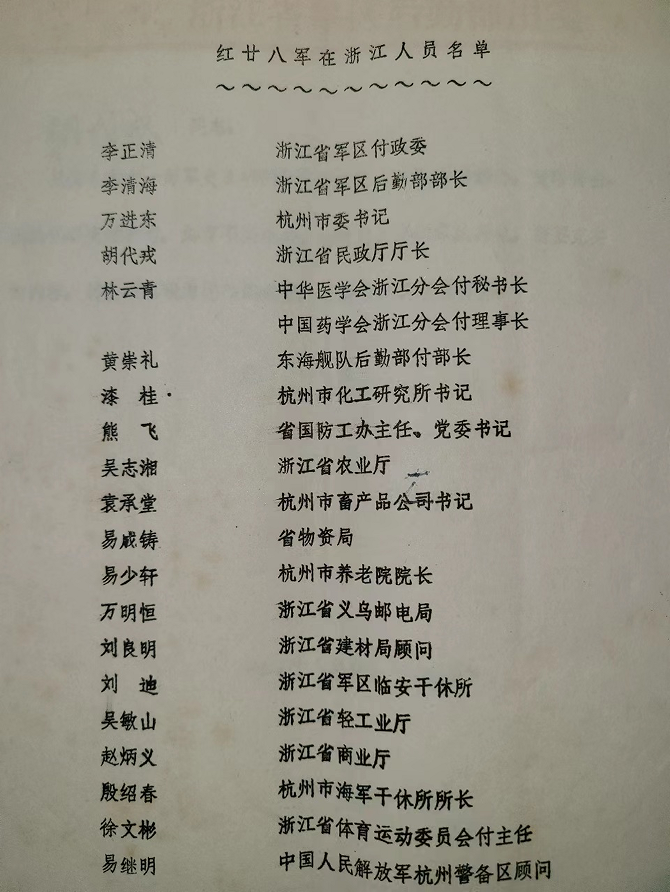 红廿八军在浙江人员名单
～～～～～～～～～～～
李正清 浙江省军区付政委
李清海 浙江省军区后勤部部长
万进东 杭州市委书记
胡代戎 浙江省民政厅厅长
林云青 中华医学会浙江分会付秘书长
中国药学会浙江分会付理事长
黄崇礼 东海舰队后勤部付部长
漆 桂 杭州市化工研究所书记
熊 飞 省国防工办主任、党委书记
吴志湘 浙江省农业厅
袁承堂 杭州市畜产品公司书记
易咸铸 省物资局
易少轩 杭州市养老院院长
万明恒 浙江省义乌邮电局
刘良明 浙江省建材局顾问
刘 迪 浙江省军区临安干休所
吴敏山 浙江省轻工业厅
赵炳义 浙江省商业厅
殷绍春 杭州市海军干休所所长
徐文彬 浙江省体育运动委员会付主任
易继明 中国人民解放军杭州警备区顾问